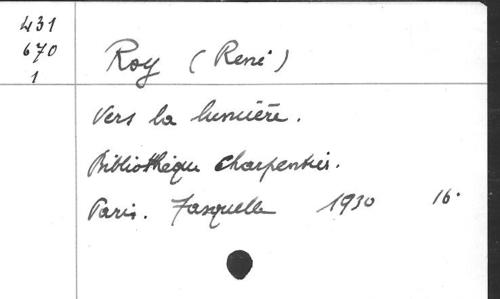 431
670
1
Roy (René)
Vers la lumière.
Bibliothèque Charpentier.
Paris. Fasquelle 1930 16°